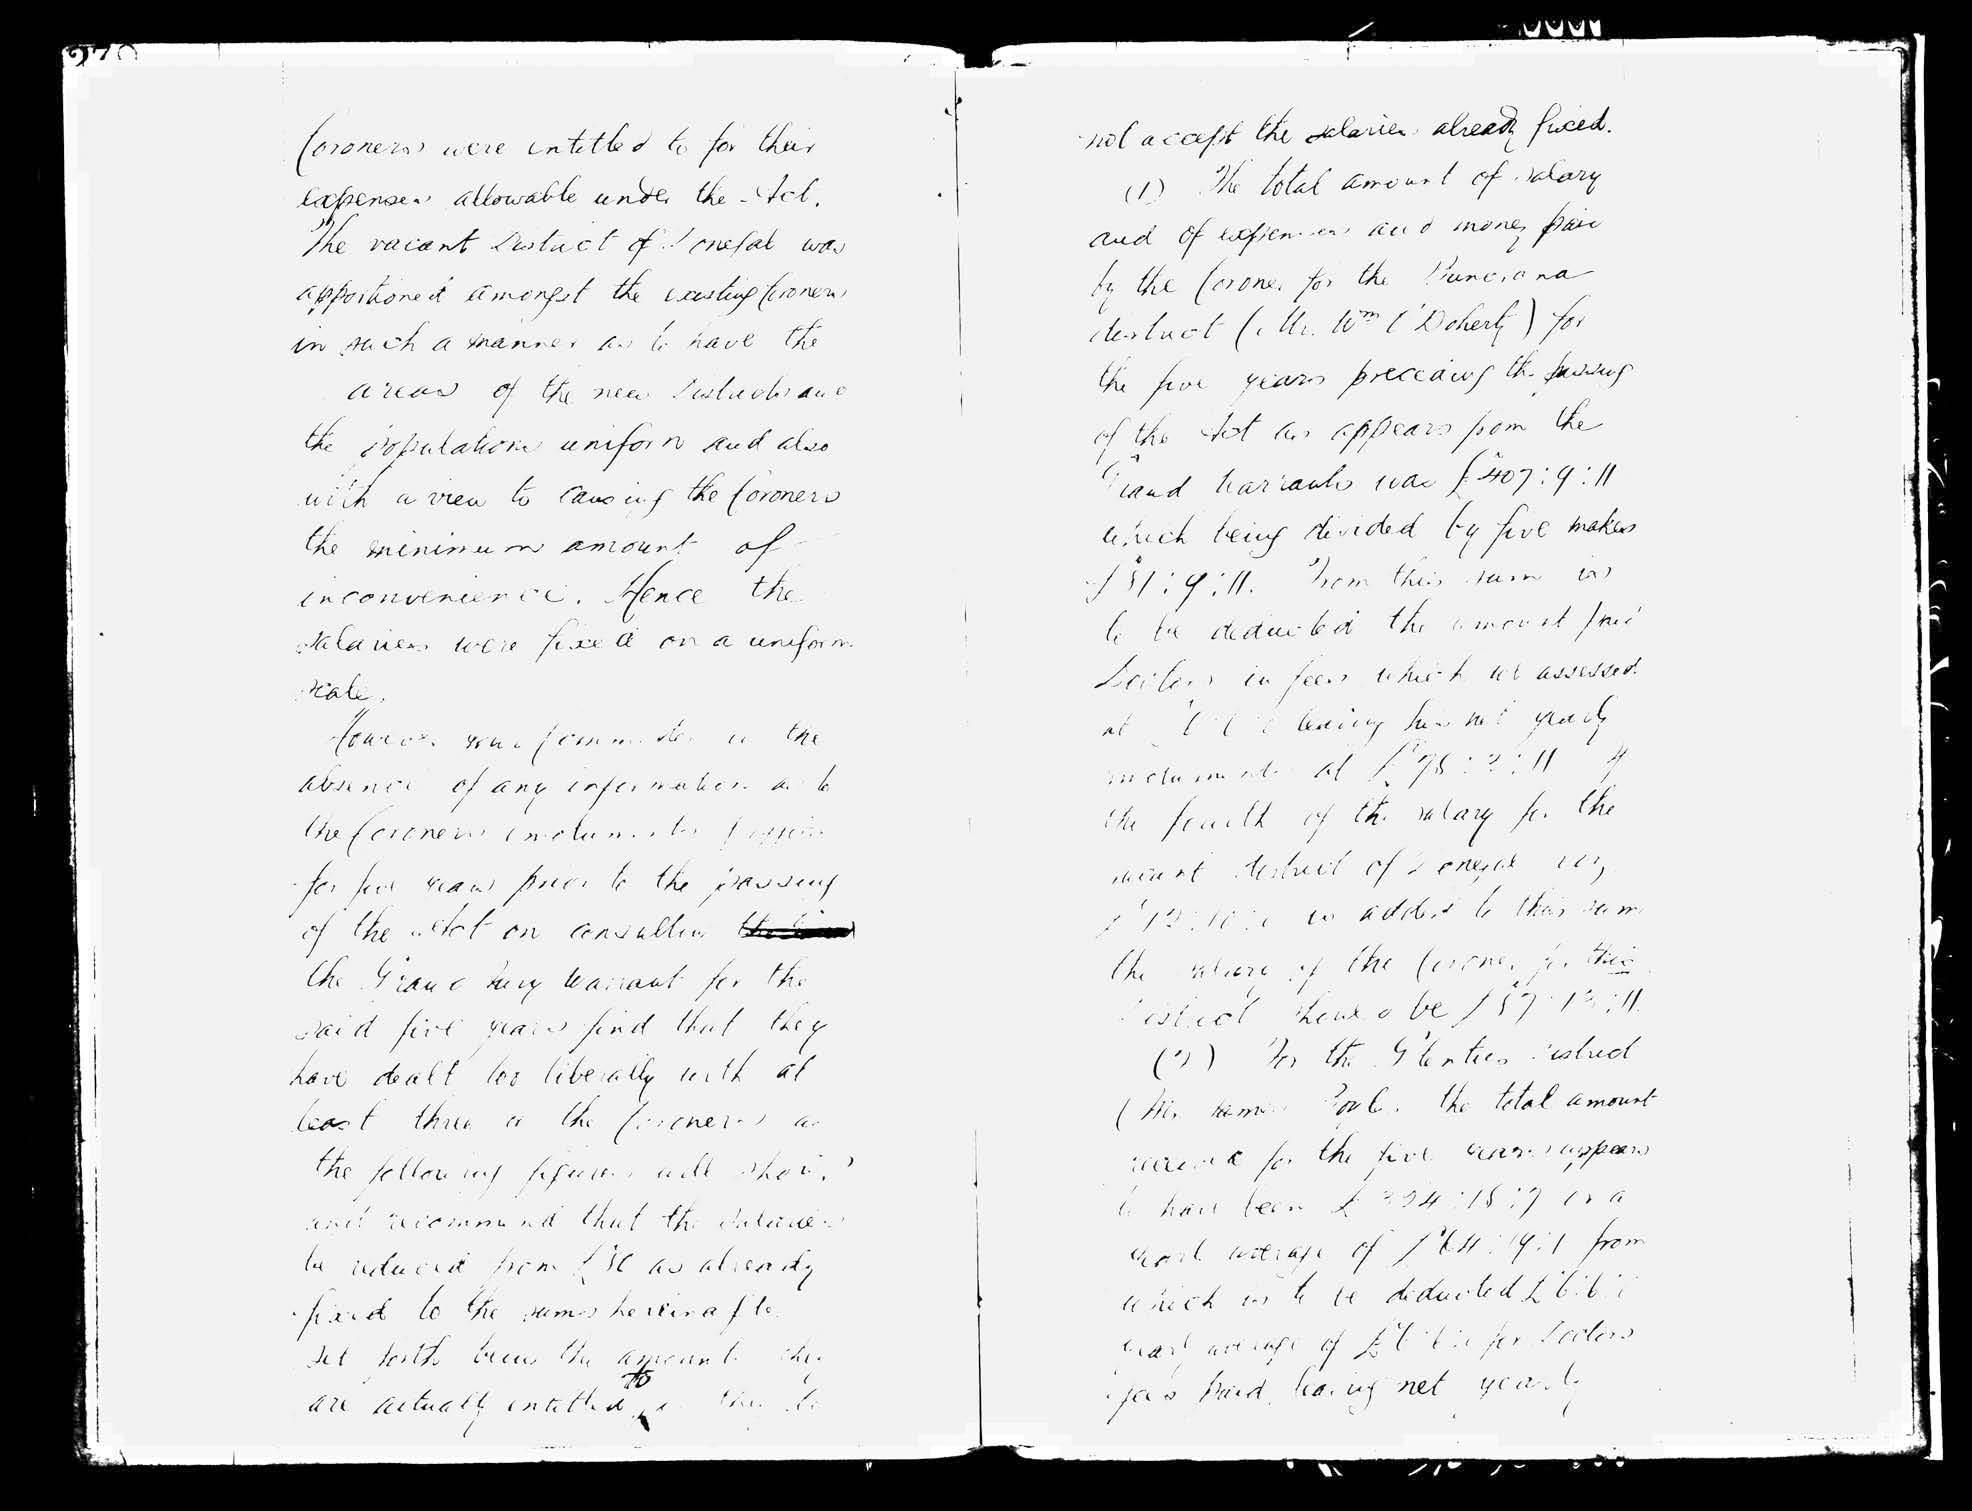 270
Coroners were entitled to for their
expenses allowable under the Act.
The vacant District of Donegal was
apportioned amongst the existing Coroners
in such a manner as to have the
areas of the new Districts and
the populations uniform and also
with a view to causing the Coroners
the minimum amount of
inconvenience. Hence the
salaries were fixed on a uniform
scale.
However your Committee in the
absence of any information as to
the Coroners emoluments
for five years prior to the passing
of the Act on consulting
the Grand Jury Warrant for the
said five years find that they
have dealt too liberally with at
least three of the Coroners as
the following figures will show,
and recommend that the salaries
be reduced from £ as already
fixed to the sums hereinafter
set forth being the amounts they
are actually entitled to
not accept the salaries already fixed.
(1) The total amount of salary
and of expenses and money paid
by the Coroner for the Buncrana
district (Mr. Wm O'Doherty) for
the five years preceding the passing
of the Act as appears from the
Grand Warrants was £407:9:11
which being divided by five makes
£81:9:11. From this sum is
to be deducted the amount paid
Doctors in fees which we assessed
at leaving his net yearly
emoluments at £ If
the fourth of the salary for the
vacant district of Donegal
is added to this sum
the salary of the Coroner for this
District should be
(2) For the Glenties District
(Mr James Boyle. the total amount
received for the five years appears
to have been £ or a
yearly average of £64:19:1 from
which is to be deducted £
yearly average of £ for Doctors
fees paid leaving net yearly